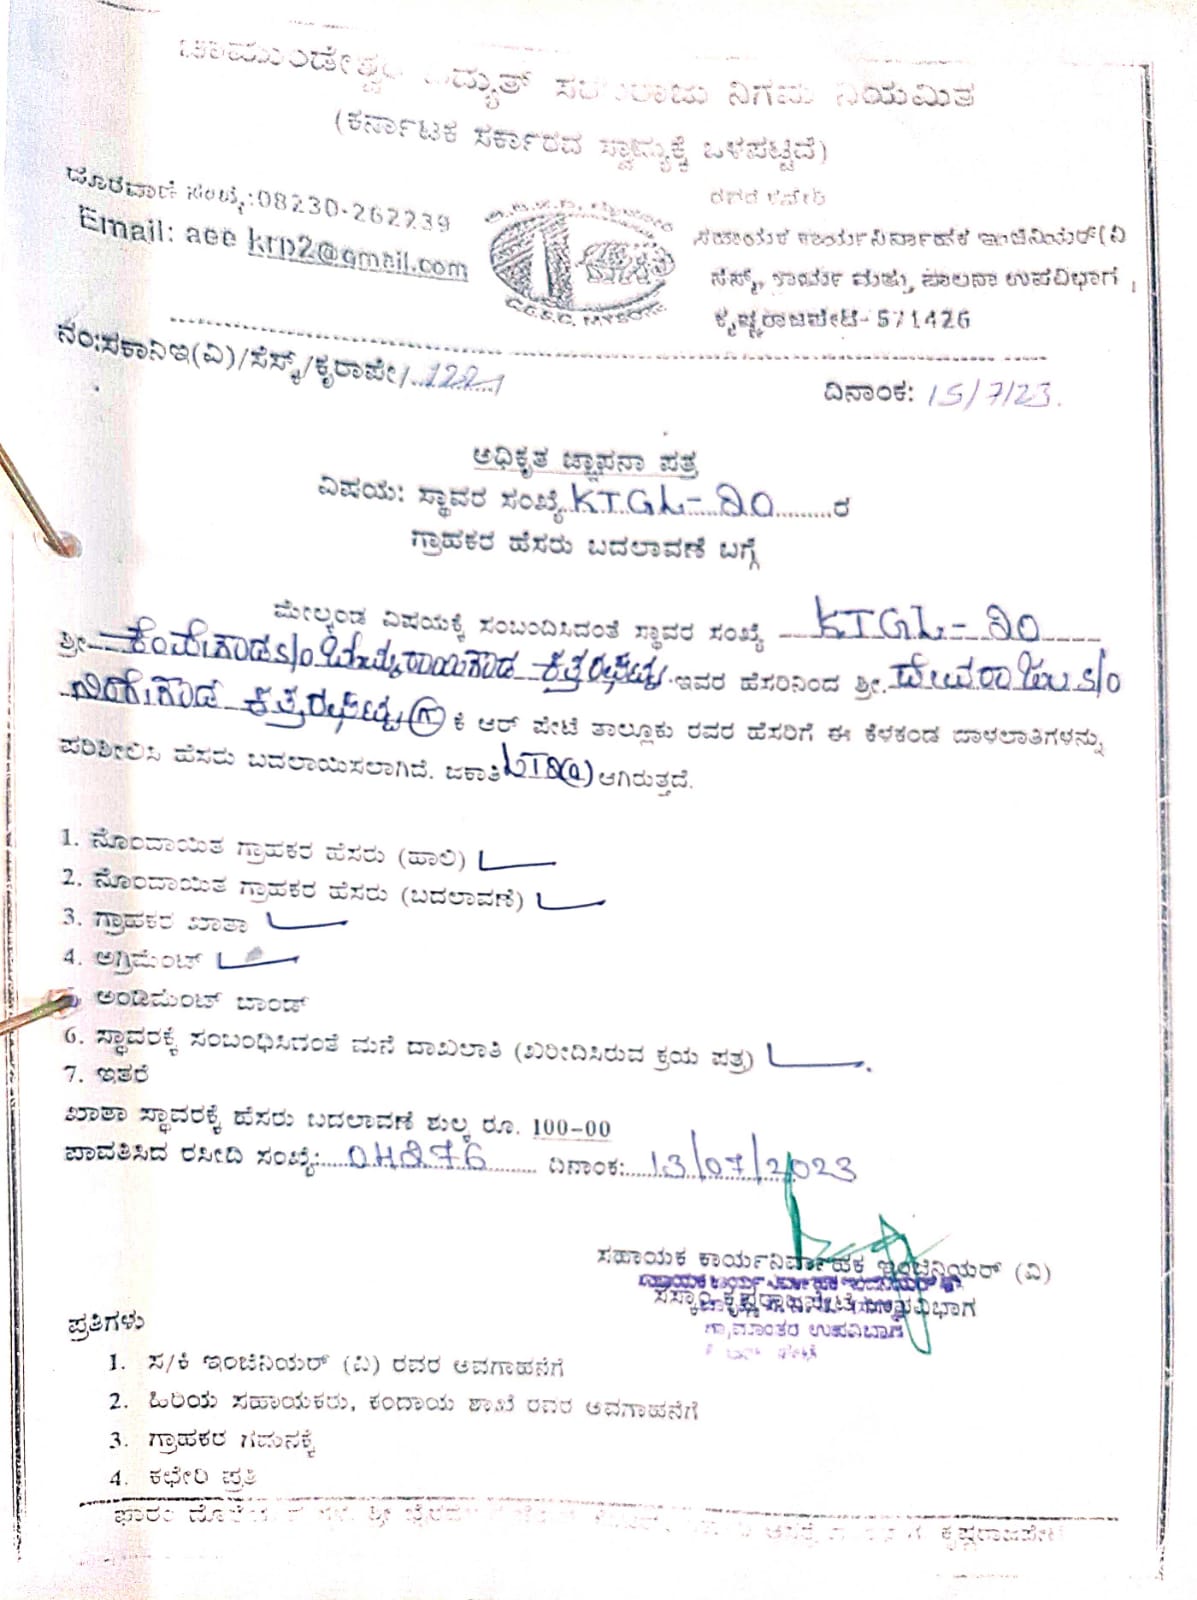 ಚಾಮುಂಡೇಶ್ವರಿ ವಿದ್ಯುತ್ ಸರಬರಾಜು ನಿಗಮ ನಿಯಮಿತ
(ಕರ್ನಾಟಕ ಸರ್ಕಾರದ ಸ್ವಾಮ್ಯಕ್ಕೆ ಒಳಪಟ್ಟಿದೆ)
ದೂರವಾಣಿ ಸಂಖ್ಯೆ:08230-262239
Email: aee krp2@gmail.com
C.E.S.C. MYSORE
ರವರ ಕಚೇರಿ
ಸಹಾಯಕ ಕಾರ್ಯನಿರ್ವಾಹಕ ಇಂಜಿನಿಯರ್(ವಿ
ಸೆಸ್ಕ್, ಕಾರ್ಯ ಮತ್ತು ಪಾಲನಾ ಉಪವಿಭಾಗ,
ಕೃಷ್ಣರಾಜಪೇಟೆ-571426
ನಂ:ಸಕಾನಿಇ(ವಿ)/ಸೆಸ್ಕ್/ಕೃರಾಪೇ/..1221
ದಿನಾಂಕ: 15/7/23.
ಅಧಿಕೃತ ಜ್ಞಾಪನಾ ಪತ್ರ
ವಿಷಯ: ಸ್ಥಾವರ ಸಂಖ್ಯೆ KTGL-20 ರ
ಗ್ರಾಹಕರ ಹೆಸರು ಬದಲಾವಣೆ ಬಗ್ಗೆ
ಮೇಲ್ಕಂಡ ವಿಷಯಕ್ಕೆ ಸಂಬಂದಿಸಿದಂತೆ ಸ್ಥಾವರ ಸಂಖ್ಯೆ KTGL-20
ಶ್ರೀ ಕೆಂಪೇಗೌಡ s/o ಇವರ ಹೆಸರಿನಿಂದ ಶ್ರೀ. ದೇವರಾಜು s/o
ಕೆ ಆರ್ ಪೇಟೆ ತಾಲ್ಲೂಕು ರವರ ಹೆಸರಿಗೆ ಈ ಕೆಳಕಂಡ ದಾಳಲಾತಿಗಳನ್ನು
ಪರಿಶೀಲಿಸಿ ಹೆಸರು ಬದಲಾಯಿಸಲಾಗಿದೆ. ಜಕಾತಿ LT2(a) ಆಗಿರುತ್ತದೆ.
1. ನೊಂದಾಯಿತ ಗ್ರಾಹಕರ ಹೆಸರು (ಹಾಲಿ)
2. ನೊಂದಾಯಿತ ಗ್ರಾಹಕರ ಹೆಸರು (ಬದಲಾವಣೆ)
3. ಗ್ರಾಹಕರ ಖಾತಾ
4. ಅಗ್ರಿಮೆಂಟ್
5 ಅಂಡಿಮೆಂಟ್ ಬಾಂಡ್
6. ಸ್ಥಾವರಕ್ಕೆ ಸಂಬಂಧಿಸಿದಂತೆ ಮನೆ ದಾಖಲಾತಿ (ಖರೀದಿಸಿರುವ ಕ್ರಯ ಪತ್ರ)
7. ಇತರೆ
ಖಾತಾ ಸ್ಥಾವರಕ್ಕೆ ಹೆಸರು ಬದಲಾವಣೆ ಶುಲ್ಕ ರೂ. 100-00
ಪಾವತಿಸಿದ ರಸೀದಿ ಸಂಖ್ಯೆ: ದಿನಾಂಕ: 13/07/2023
ಸಹಾಯಕ ಕಾರ್ಯನಿರ್ವಾಹಕ ಇಂಜಿನಿಯರ್ (ವಿ)
ಸೆಸ್ಕಾಂ ಕೃಷ್ಣರಾಜಪೇಟೆ ಉಪವಿಭಾಗ
ಗ್ರಾಮಾಂತರ ಉಪವಿಭಾಗ
ಪ್ರತಿಗಳು
1. ಸ/ಕಿ ಇಂಜಿನಿಯರ್ (ವಿ) ರವರ ಅವಗಾಹನೆಗೆ
2. ಹಿರಿಯ ಸಹಾಯಕರು, ಕಂದಾಯ ಶಾಖೆ ರವರ ಅವಗಾಹನೆಗೆ
3. ಗ್ರಾಹಕರ ಗಮನಕ್ಕೆ
4. ಕಛೇರಿ ಪ್ರತಿ
ಫಾರಂ ಶ್ರೀ ಕೃಷ್ಣರಾಜಪೇಟೆ